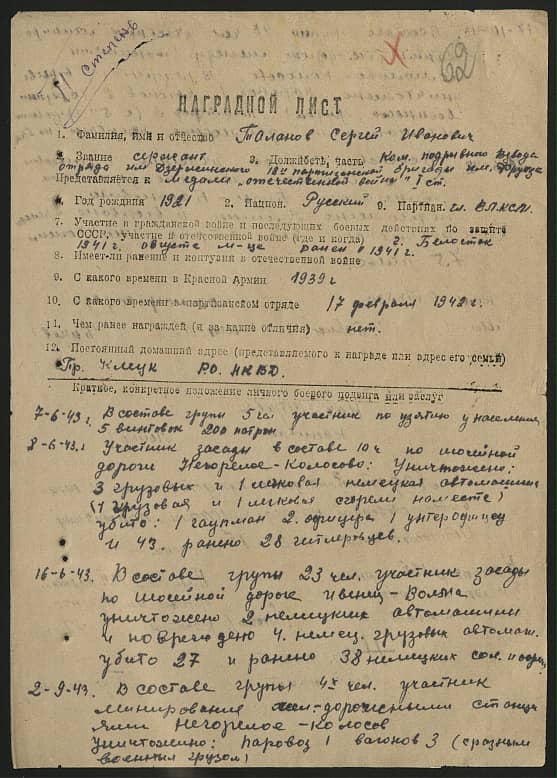 II степень
62
НАГРАДНОЙ ЛИСТ
1. Фамилия, имя и отчество Таланов Сергей Иванович
2. Звание сержант 3. Должность, часть Ком. подрывного взвода
отряда им Дзержинского 18й партизанской бригады им. Фрунзе
Представляется к Медали „отечественной войны" I ст.
Год рождния 1921 2. Национ. Русский 9. Партпан. чл. ВЛКСМ
7. Участие в гражданской войне и последующих боевых действиях по защите
СССР, участие в отечественной войне (где и когда) г. Белосток
1941 г. августе м-це ранен в 1941 г.
8. Имеет-ли ранение и контузии в отечественной войне
9. С какого времени в Красной Армии 1939 г
10. С какого времени в партизанском отряде 17 февраля 1942 г.
11. Чем ранее награжден (и за какие отличия) нет.
12. Постоянный домашний адрес (представляемого к награде или адрес его семьи)
Гр. Клецк РО. НКВД.
Краткое, конкретное изложение личного боевого подвига или заслуг
7-6-43г. В составе групы 5 чел участник по узятию у населения
5 винтовок 200 патрон
8-6-43.г Участник засады в составе 10ч по шосейной
дороги Негорелое-Колосово: Уничтожено:
3 грузовых и 1 легковая немецкая автомашина
(1 грузовая и 1 легковая сгорели наместе)
убито: 1 гаупман 2. офицера 1 унтерофицер
и 43. ранено 28 гитлеровцев.
16-6-43. В составе групы 23 чел. участник засады
по шосейной дороге Ивенец-Волма
уничтожено 2 немецких автомашини
и повреждено 4. немец. грузовых автомаш.
убито 27 и ранено 38 немецких сол. и офиц
2-9-43. В составе групы 4х чел. участник
минирование жел-дороч станця
ями Негорелое-Колосов
Уничтожино: паровоз 1 вагонов 3 (с разным
военным грузом)